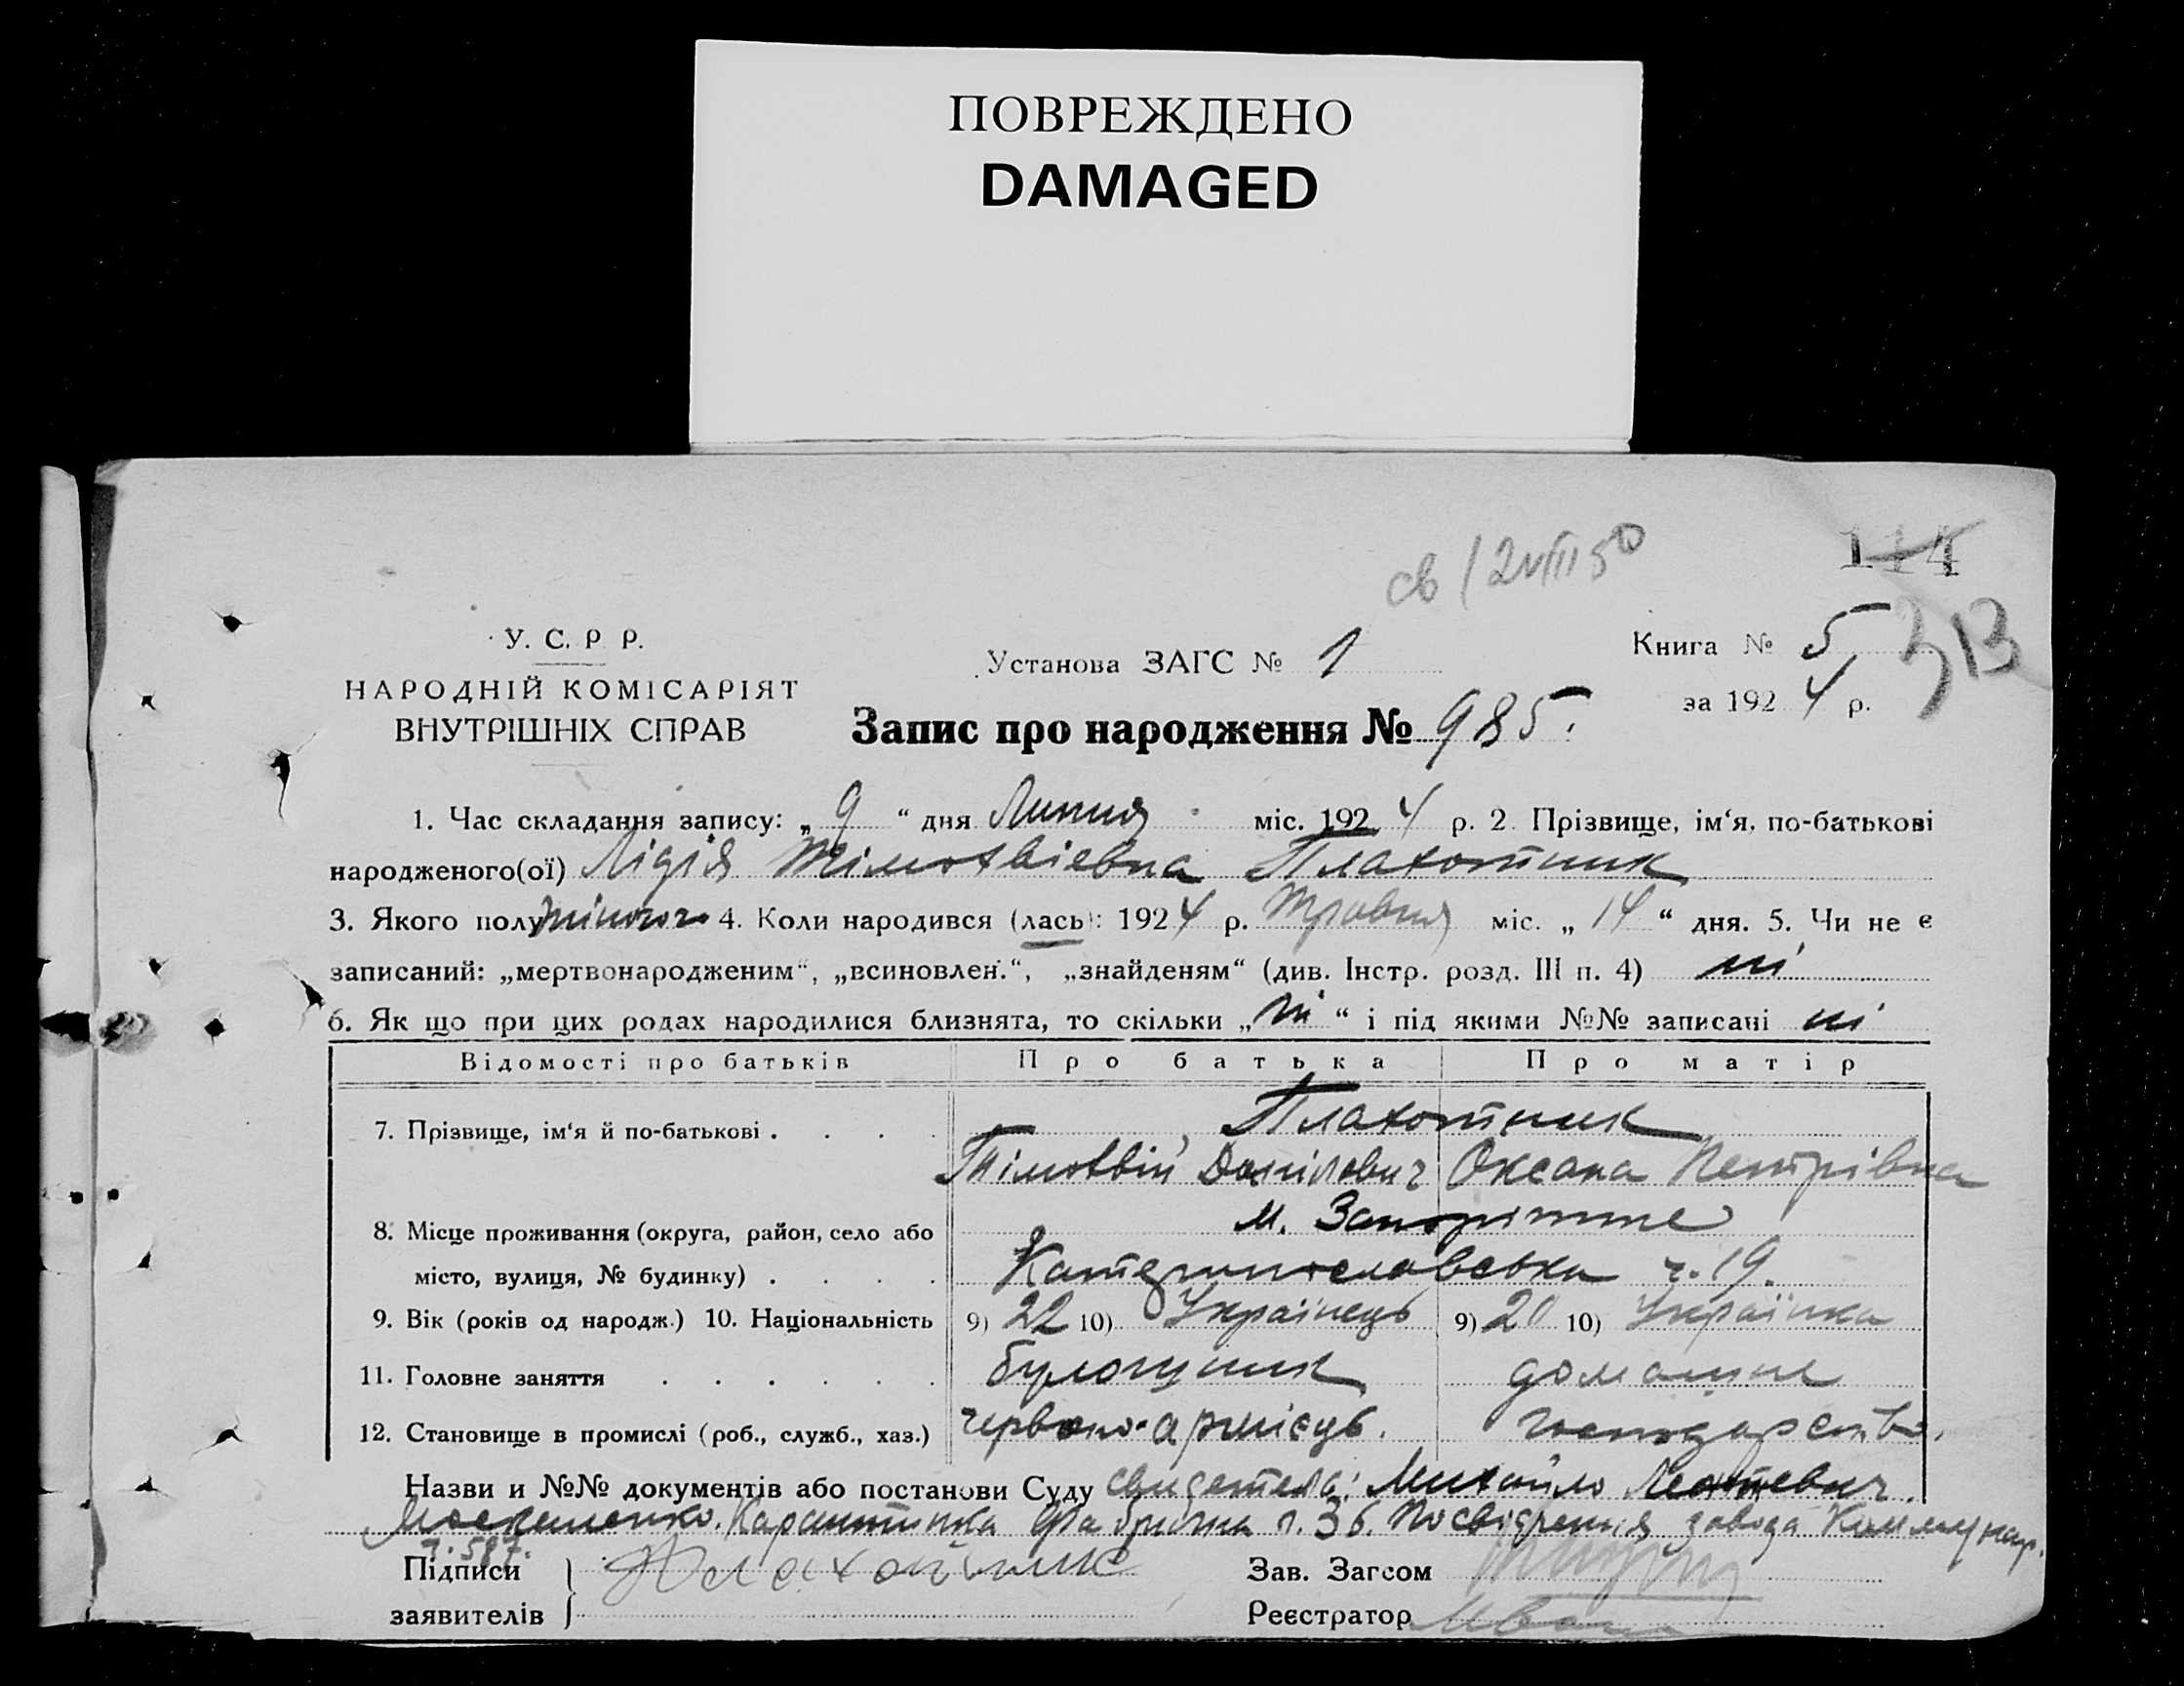 ПОВРЕЖДЕНО
DAMAGED
св 12 VIII 50
144
313
У. С. Р. Р.
НАРОДНІЙ КОМІСАРІЯТ
ВНУТРІШНІХ СПРАВ
Установа ЗАГС № 1
Книга № 5
за 1924 р.
Запис про народження № 985.
1. Час складання запису: „9“ дня Липня міс. 1924 р. 2. Прізвище, ім‘я, по-батькові
народженого(ої) Лідія Тімотвіевна Плахотник
3. Якого полу жіночого 4. Коли народився (лась): 1924 р. Травня міс. „14“ дня. 5. Чи не є
записаний: „мертвонародженим“, „всиновлен.“, „знайденям“ (див. Інстр. розд. III п. 4) ні
6. Як що при цих родах народилися близнята, то скільки „ні“ і під якими №№ записані ні
Відомості про батьків Про батька Про матір
7. Прізвище, ім‘я й по-батькові . . . . Плахотник
Тімотвій Данілович Оксана Петрівна
м. Запоріжже
8. Місце проживання (округа, район, село або
місто, вулиця, № будинку) . . . . Катеринославська ч. 19.
9. Вік (років од народж.) 10. Національність 9) 22 10) Українець 9) 20 10) Українка
11. Головне заняття . . . . . . булочник домашне
12. Становище в промислі (роб., служб., хаз.) червоно-армієць. господарство.
Назви и №№ документів або постанови Суду свидетель: Михайло Леонтевич
Карантинка Фабрична ч. 36. Посвідчення завода Коммунар.
ч. 587.
Підписи
заявителів
Плахотник
Зав. Загсом
Реєстратор